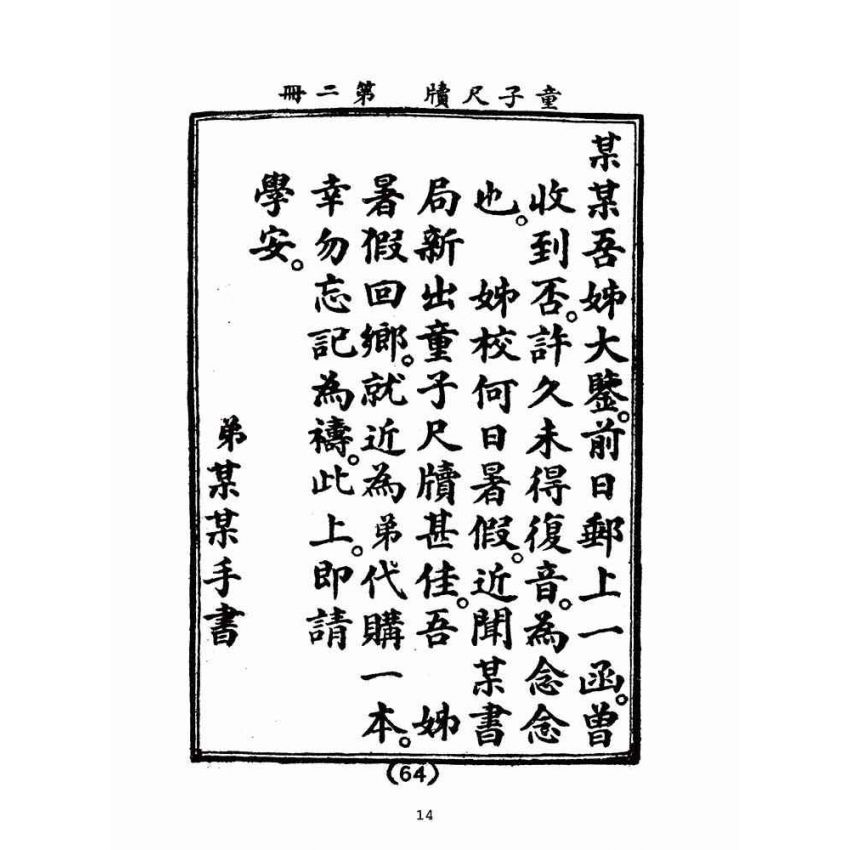 童子尺牘　第二冊
某某吾姊大鑒。前日郵上一函。曾
收到否。許久未得復音。為念念
也。　姊校何日暑假。近聞某書
局新出童子尺牘甚佳。吾　姊
暑假回鄉。就近為弟代購一本。
幸勿忘記為禱。此上。即請
學安。
弟某某手書
(64)
14